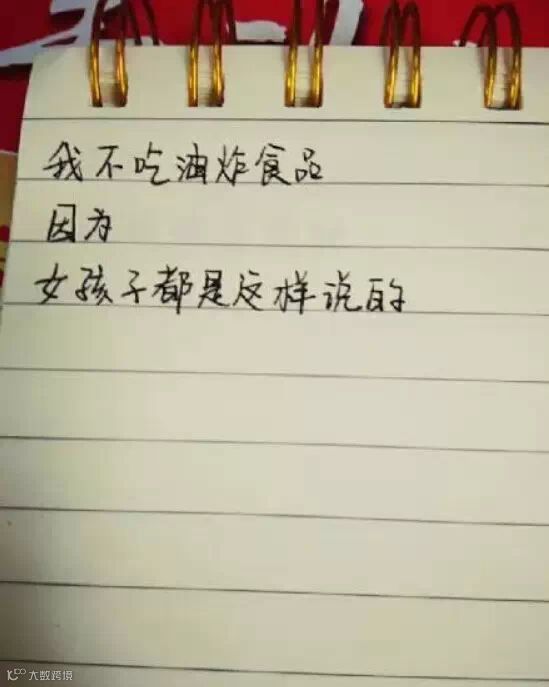 我不吃油炸食品
因为
女孩子都是这样说的
大数跨境